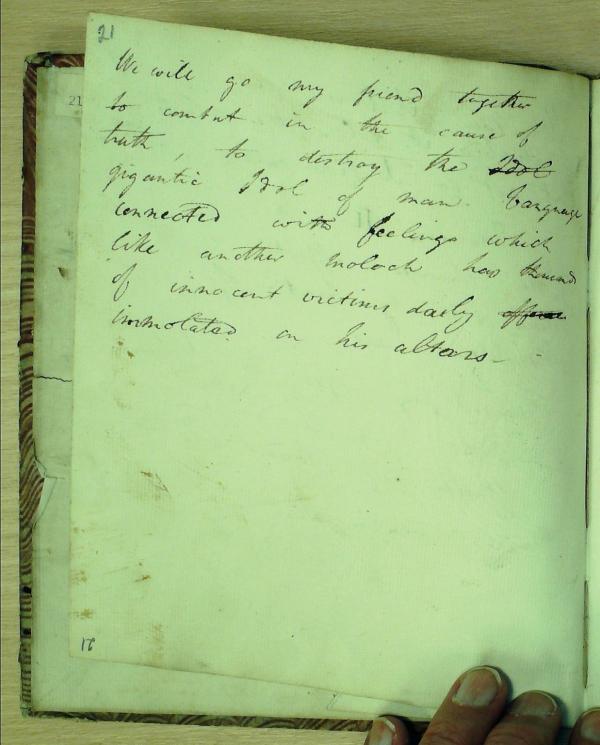 21
21
We will go my friend together
to combat in the cause of
truth, to destroy the Idol
gigantic Idol of man. Language
connected with feelings which
like another Moloch has
of innocent victims daily
immolated on his altars -